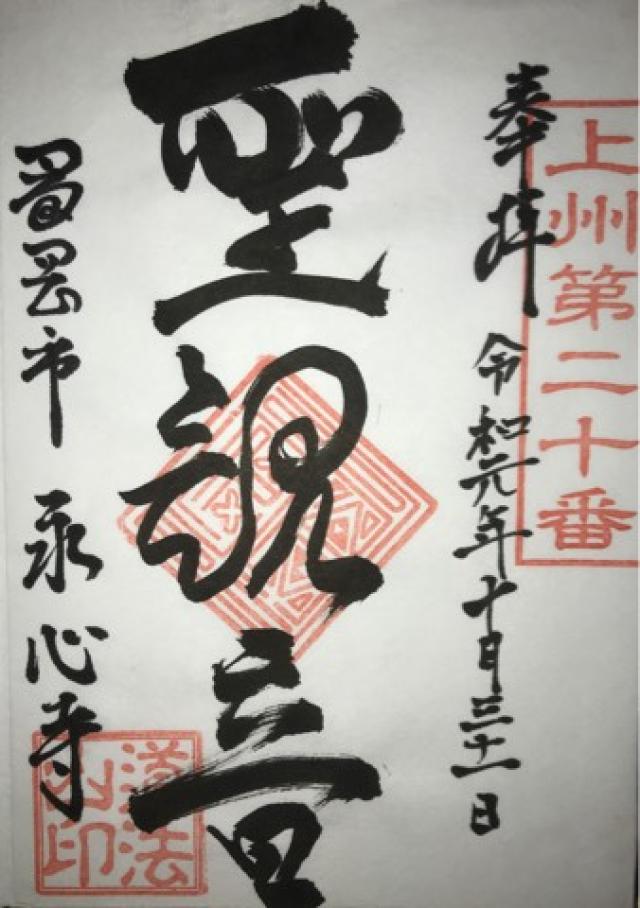 上州第二十番
奉拝 令和元年十月三十一日
聖観音
富岡市 永心寺
法
山印